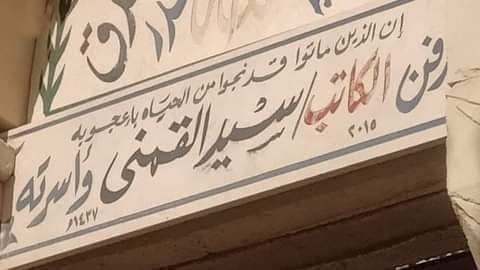 إن الذين ماتوا قد نجوا من الحياه بأعجوبه
مدفن الكاتب/سيد القمنى وأسرته
٢٠١٥
١٤٣٧هـ